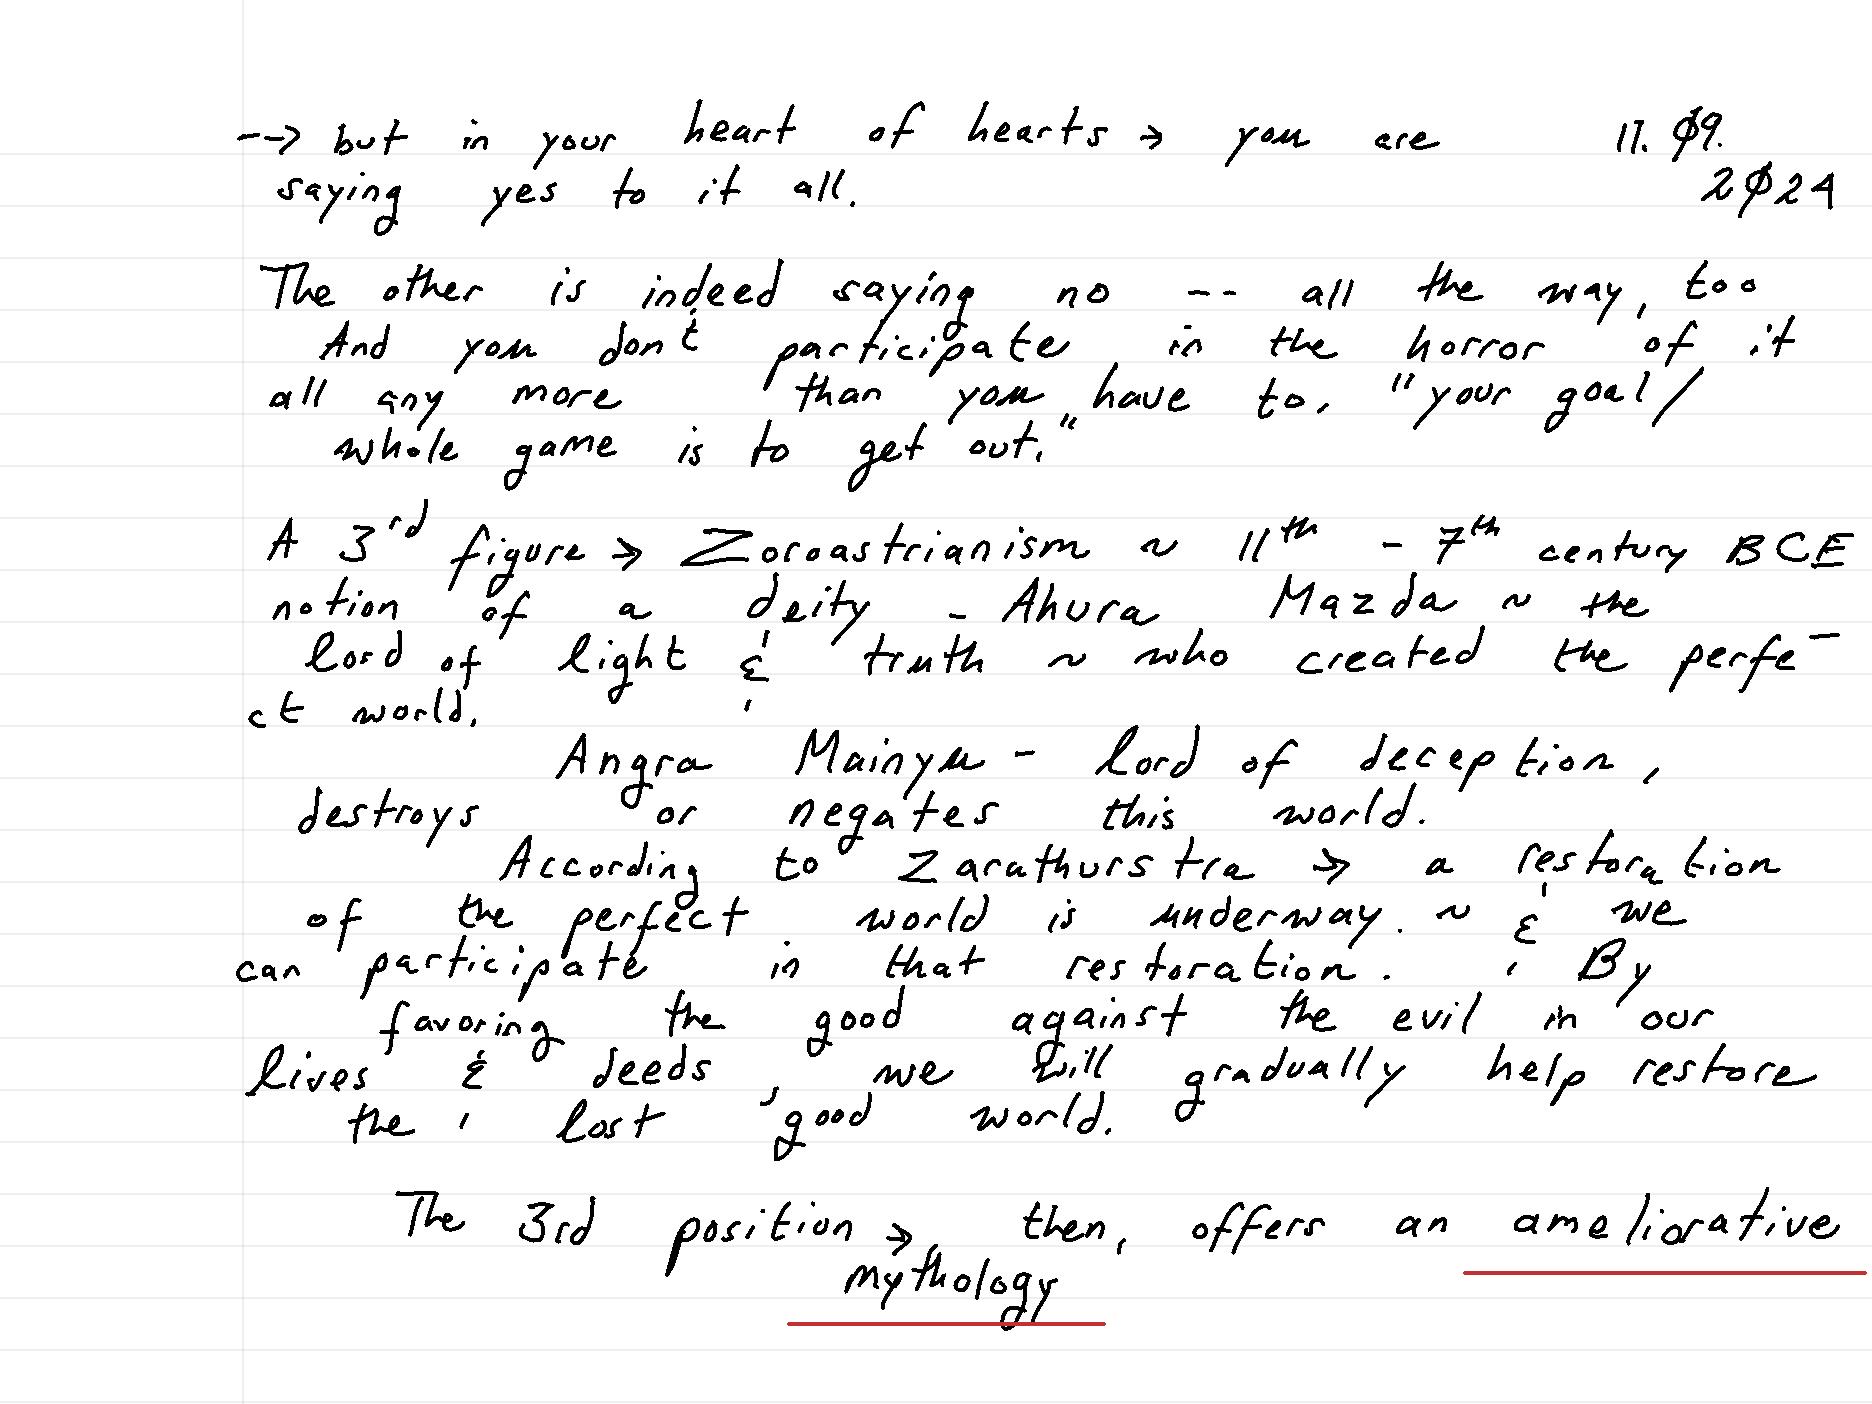 --> but in your heart of hearts → you are 11. Ø9.
saying yes to it all. 2Ø24
The other is indeed saying no -- all the way, too
And you don't participate in the horror of it
all any more than you have to. "your goal/
whole game is to get out."
A 3rd figure → Zoroastrianism ~ 11th - 7th century BCE
notion of a deity - Ahura Mazda ~ the
lord of light & truth ~ who created the perfe-
ct world.
Angra Mainyu - lord of deception,
destroys or negates this world.
According to Zarathurstra → a restoration
of the perfect world is underway. ~ & we
can participate in that restoration. By
favoring the good against the evil in our
lives & deeds, we will gradually help restore
the lost good world.
The 3rd position → then, offers an ameliorative
mythology